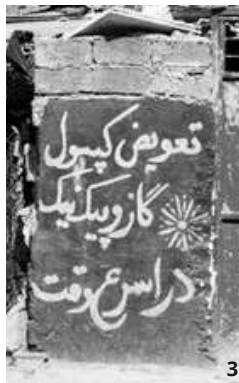 تعویض کپسول
گاز و پیک نیک
در اسرع وقت
3